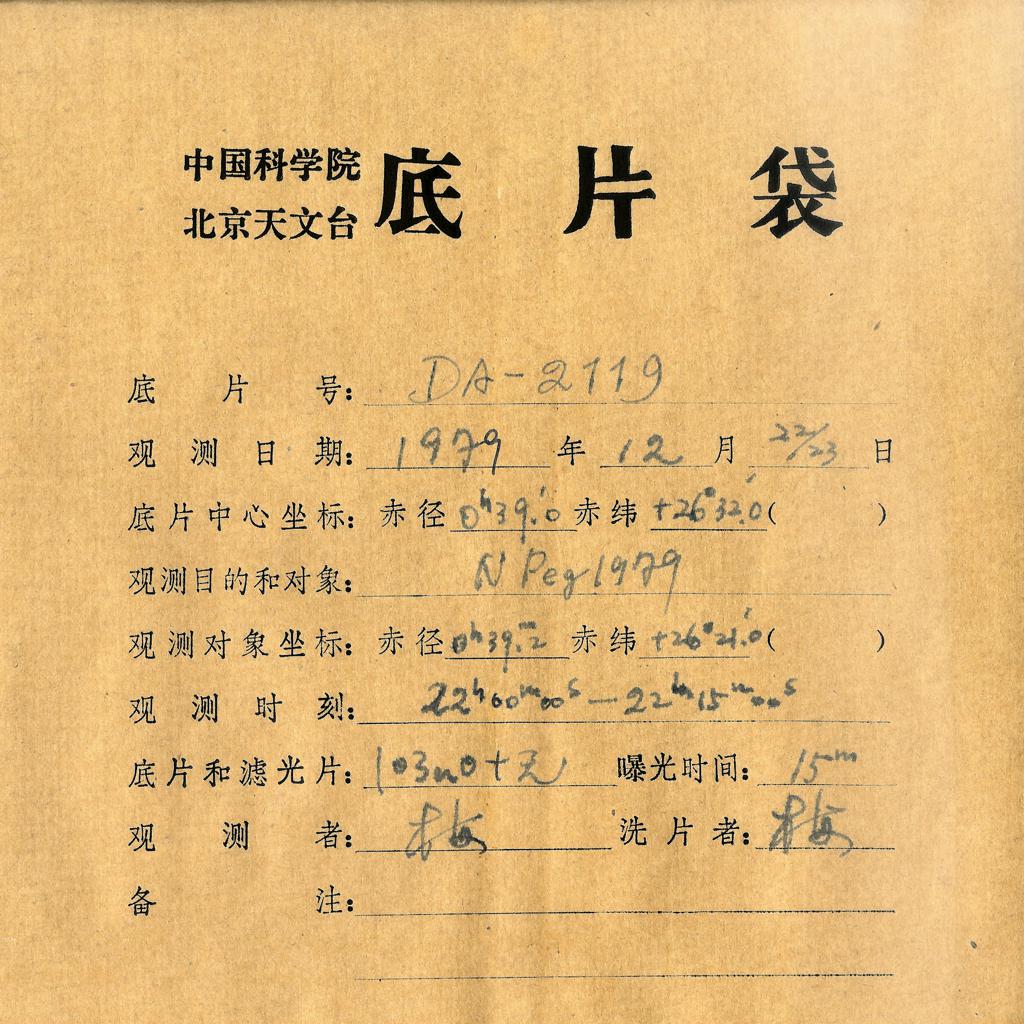 中国科学院
北京天文台 底片袋
底片号: DA-2119
观测日期: 1979 年 12 月 22/23 日
底片中心坐标: 赤径 0ʰ39.′0 赤纬 +26°32.′0 ( )
观测目的和对象: N Peg 1979
观测对象坐标: 赤径 0ʰ39.ᵐ2 赤纬 +26°21.′0 ( )
观测时刻: 22ʰ00ᵐ00ˢ — 22ʰ15ᵐ00ˢ
底片和滤光片: 103aO+无 曝光时间: 15ᵐ
观测者: 梅 洗片者: 梅
备注: